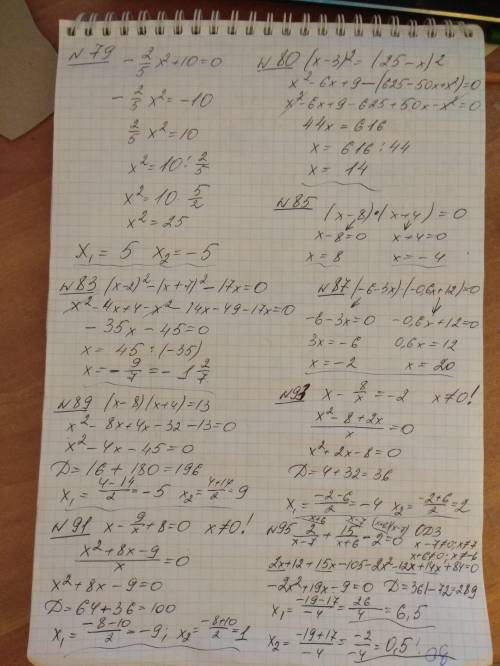 №79 - 2/5 x² + 10 = 0
- 2/5 x² = -10
2/5 x² = 10
x² = 10 : 2/5
x² = 10 · 5/2
x² = 25
x₁ = 5 x₂ = -5
№80 (x-3)² = (25-x)²
x² - 6x + 9 - (625 - 50x + x²) = 0
x² - 6x + 9 - 625 + 50x - x² = 0
44x = 616
x = 616 : 44
x = 14
№83 (x-2)² - (x+7)² - 17x = 0
x² - 4x + 4 - x² - 14x - 49 - 17x = 0
- 35x - 45 = 0
x = 45 : (-35)
x = - 9/7 = - 1 2/7
№85 (x-8)·(x+4) = 0
x-8=0 x+4=0
x = 8 x = -4
№87 (-6-3x)(-0,6x+12)=0
-6-3x=0 -0,6x+12=0
3x = -6 0,6x = 12
x = -2 x = 20
№89 (x-8)(x+4) = 13
x² - 8x + 4x - 32 - 13 = 0
x² - 4x - 45 = 0
D = 16 + 180 = 196
x₁ = (4-14)/2 = -5 x₂ = (4+14)/2 = 9
№93 x - 8/x = -2 x≠0!
(x² - 8 + 2x)/x = 0
x² + 2x - 8 = 0
D = 4 + 32 = 36
x₁ = (-2-6)/2 = -4 x₂ = (-2+6)/2 = 2
№91 x - 9/x + 8 = 0 x≠0!
(x² + 8x - 9)/x = 0
x² + 8x - 9 = 0
D = 64 + 36 = 100
x₁ = (-8-10)/2 = -9; x₂ = (-8+10)/2 = 1
№95 2/(x-7) + 15/(x+6) - 2 = 0 ОДЗ
x-7≠0; x≠7
x+6≠0; x≠-6
2x+12+15x-105-2x²-12x+14x+84=0
-2x²+19x-9=0 D=361-72=289
x₁ = (-19-17)/-4 = 26/4 = 6,5
x₂ = (-19+17)/-4 = -2/-4 = 0,5